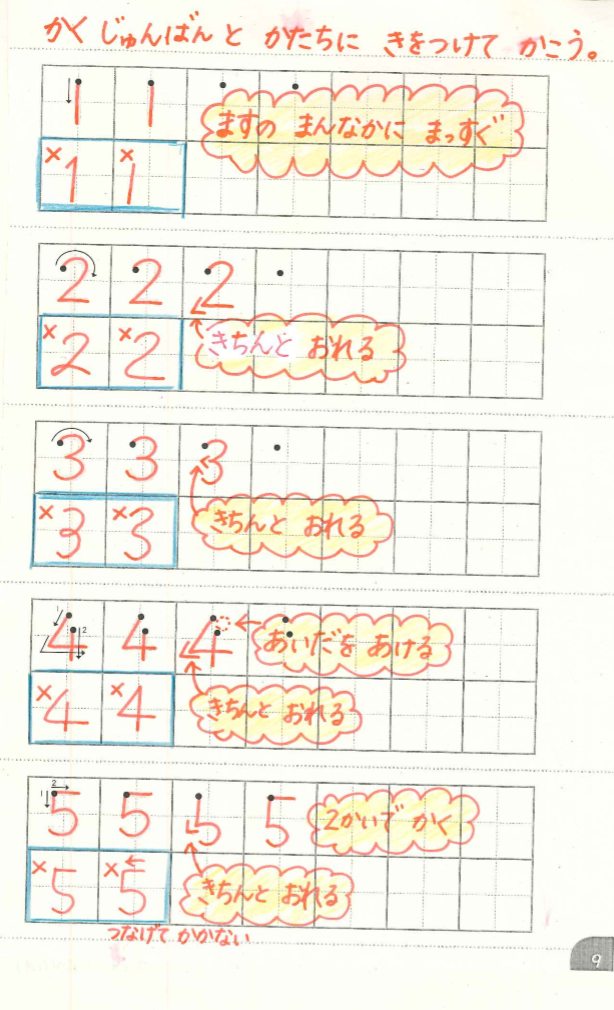 かく じゅんばん と かたちに きをつけて かこう。
1 1 ますの まんなかに まっすぐ
× 1 × 1
2 2 2
× 2 × 2 きちんと おれる
3 3 3
× 3 × 3 きちんと おれる
1 2 4 4 4 あいだを あける
× 4 × 4 きちんと おれる
1 2 5 5 5 5 2かいで かく
× 5 × 5 きちんと おれる
つなげて かかない
9